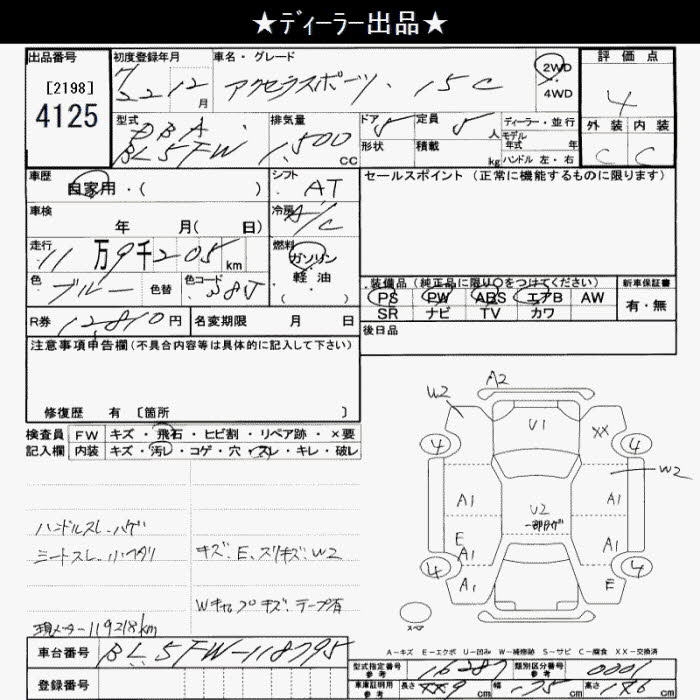 ★ディーラー出品★
出品番号
[2198]
4125
初度登録年月
22 12月
車名・グレード
アクセラスポーツ . 15C
2WD
4WD
評価点
4
外装 内装
C C
型式
DBA .
BL5FW
排気量
1,500 cc
ドア 5
形状
定員 5 人
積載 kg
ディーラー・並行
モデル
年式 年
ハンドル 左・右
車歴
自家用・( )
シフト
AT
セールスポイント (正常に機能するものに限ります)
車検
年 月( 日)
冷房
A/C
走行
11万9千205 km
燃料
ガソリン
軽油
( )
色
ブルー
色替
色コード
装備品(純正品に限り○をつけてください)
新車保証書
PS PW ABS エアB AW
SR ナビ TV カワ
有・無
R券 12,810円
名変期限 月 日
後日品
注意事項申告欄(不具合内容等は具体的に記入して下さい)
修復歴 有 〔箇所 〕
検査員 FW キズ・飛石・ヒビ割・リペア跡・×要
記入欄 内装 キズ・汚レ・コゲ・穴・スレ・キレ・破レ
ハンドルスレ.ハゲ
シートスレ.小ヘタリ
キズ.E.スリキズ.W2
Wキャップキズ.テープ有
現メーター119218km
A2
W2
U1
XX
4
4
W2
A1
A1
U2
E
A1
A1
4
4
A1
E
スペア
A-キズ E-エクボ U-凹み W-補修跡 S-サビ C-腐食 XX-交換済
車台番号 BL5FW-118795
登録番号
型式指定番号
参考
16287
類別区分番号
参考
0001
車庫証明用
参考
長さ cm 幅 cm 高さ cm